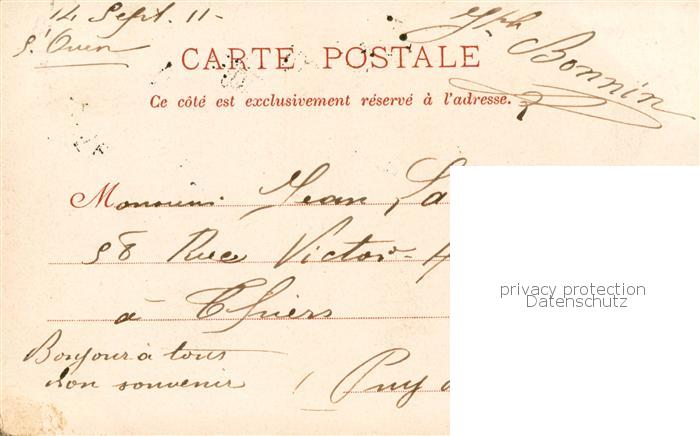 14 Sept. 11-
St Ouen
Jph Bonnin
CARTE POSTALE
Ce côté est exclusivement réservé à l'adresse.
Monsieur Jean La
58 Rue Victor-
à Thiers
Bonjour à tous
bon souvenir
Puy d
privacy protection
Datenschutz